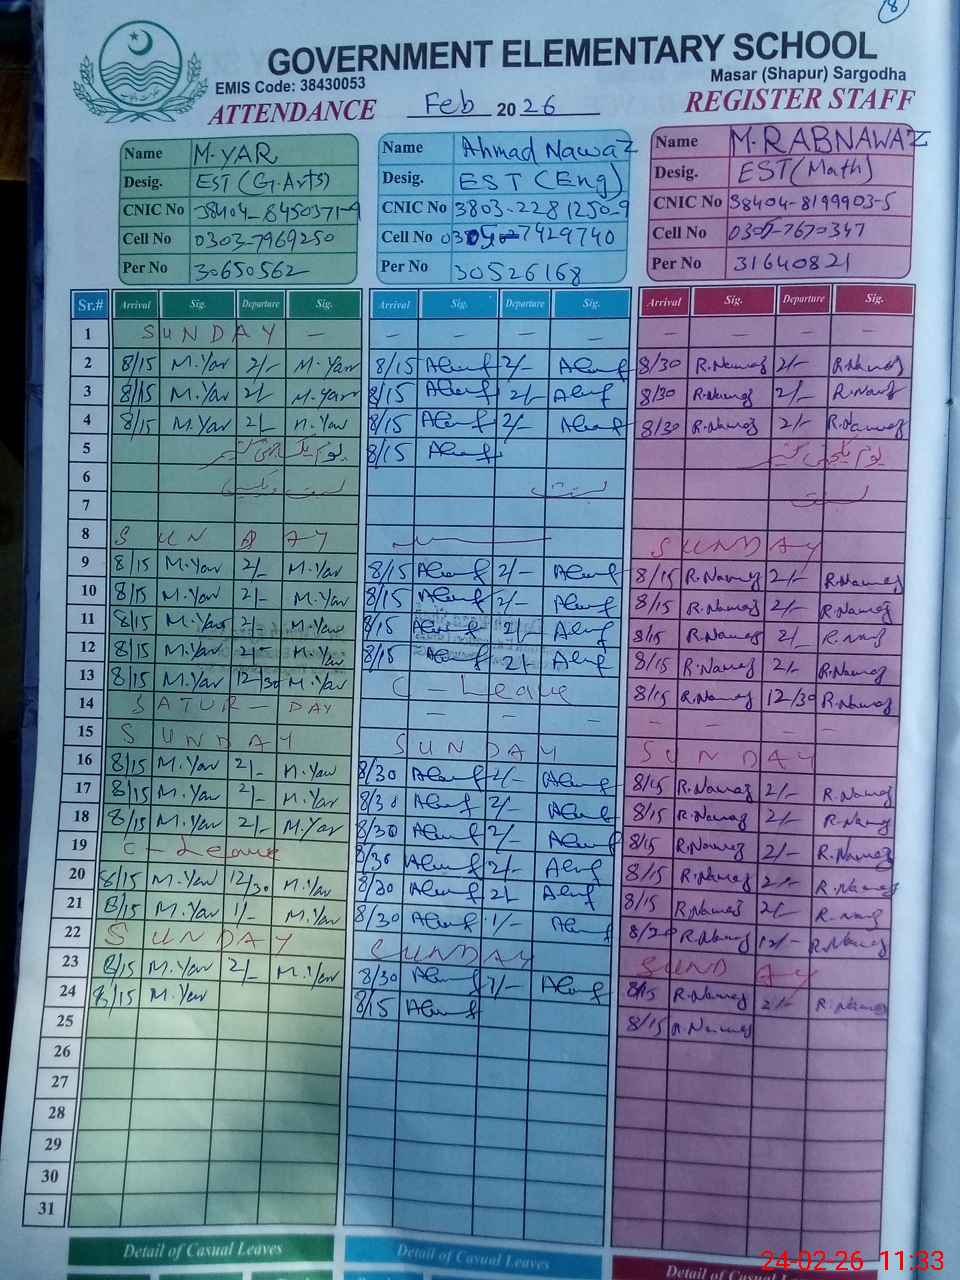 8
GOVERNMENT ELEMENTARY SCHOOL
EMIS Code: 38430053
Masar (Shapur) Sargodha
ATTENDANCE Feb 2026 REGISTER STAFF
Name M.YAR Name Ahmad Nawaz Name M.RABNAWAZ
Desig. EST (G.Arts) Desig. EST (Eng) Desig. EST (Math)
CNIC No 38404-8450371-9 CNIC No 3803-2281250-9 CNIC No 38404-8199903-5
Cell No 0303-7969250 Cell No 7429740 Cell No 0305-7670347
Per No 30650562 Per No 30526168 Per No 31640821
Sr.# Arrival Sig. Departure Sig. Arrival Sig. Departure Sig. Arrival Sig. Departure Sig.
1 SUNDAY - - - - - - - - -
2 8/15 M.Yar 2/- M.Yar 8/15 2/- 8/30 R.Nawaz 2/- R.Nawaz
3 8/15 M.Yar 2/- M.Yar 8/15 2/- 8/30 R.Nawaz 2/- R.Nawaz
4 8/15 M.Yar 2/- M.Yar 8/15 2/- 8/30 R.Nawaz 2/- R.Nawaz
5 یوم یکجہتی کشمیر 8/15 یوم یکجہتی کشمیر
6 بسنت بسنت بسنت
7
8 SUNDAY SUNDAY
9 8/15 M.Yar 2/- M.Yar 8/15 2/- 8/15 R.Nawaz 2/- R.Nawaz
10 8/15 M.Yar 2/- M.Yar 8/15 2/- 8/15 R.Nawaz 2/- R.Nawaz
11 8/15 M.Yar 2/- M.Yar 8/15 2/- 8/15 R.Nawaz 2/- R.Nawaz
12 8/15 M.Yar 2/- M.Yar 8/15 2/- 8/15 R.Nawaz 2/- R.Nawaz
13 8/15 M.Yar 12/30 M.Yar C-Leave 8/15 R.Nawaz 12/30 R.Nawaz
14 SATUR-DAY - - - - - - -
15 SUNDAY SUNDAY SUNDAY
16 8/15 M.Yar 2/- M.Yar 8/30 2/- 8/15 R.Nawaz 2/- R.Nawaz
17 8/15 M.Yar 2/- M.Yar 8/30 2/- 8/15 R.Nawaz 2/- R.Nawaz
18 8/15 M.Yar 2/- M.Yar 8/30 2/- 8/15 R.Nawaz 2/- R.Nawaz
19 C-Leave 8/30 2/- 8/15 R.Nawaz 2/- R.Nawaz
20 8/15 M.Yar 12/30 M.Yar 8/30 2/- 8/15 R.Nawaz 2/- R.Nawaz
21 8/15 M.Yar 1/- M.Yar 8/30 1/- R.Nawaz 12/- R.Nawaz
22 SUNDAY SUNDAY SUNDAY
23 8/15 M.Yar 2/- M.Yar 8/30 8/15 R.Nawaz 2/- R.Nawaz
24 8/15 M.Yar 8/15 8/15 R.Nawaz
25
26
27
28
29
30
31
Detail of Casual Leaves Detail of Casual Leaves Detail of Casual Leaves
24-02-26 11:33